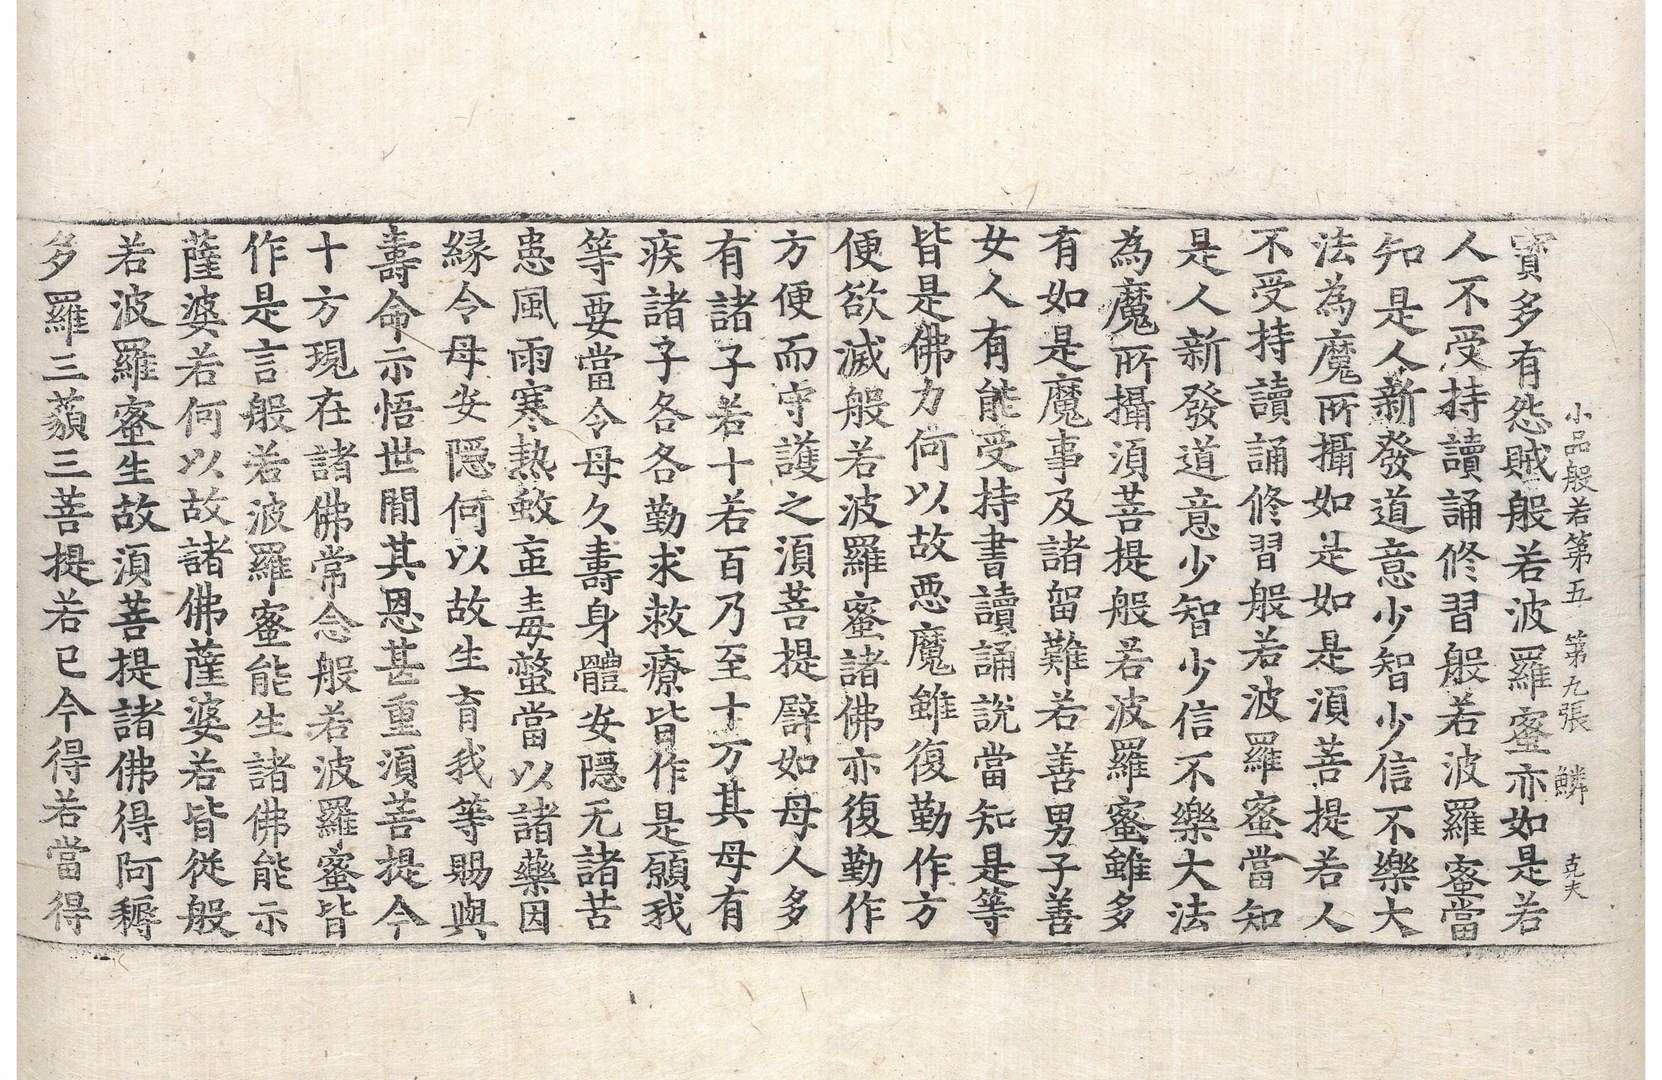 小品般若第五　第九張　鱗　克夫
寶多有怨賊般若波羅蜜亦如是若
人不受持讀誦修習般若波羅蜜當
知是人新發道意少智少信不樂大
法為魔所攝如是如是須菩提若人
不受持讀誦修習般若波羅蜜當知
是人新發道意少智少信不樂大法
為魔所攝須菩提般若波羅蜜雖多
有如是魔事及諸留難若善男子善
女人有能受持書讀誦說當知是等
皆是佛力何以故惡魔雖復勤作方
便欲滅般若波羅蜜諸佛亦復勤作
方便而守護之須菩提譬如母人多
有諸子若十若百乃至十万其母有
疾諸子各各勤求救療皆作是願我
等要當令母久壽身體安隱无諸苦
患風雨寒熱蚊䖟毒螫當以諸藥因
緣令母安隱何以故生育我等賜與
壽命示悟世閒其恩甚重須菩提今
十方現在諸佛常念般若波羅蜜皆
作是言般若波羅蜜能生諸佛能示
薩婆若何以故諸佛薩婆若皆從般
若波羅蜜生故須菩提諸佛得阿耨
多羅三藐三菩提若已今得若當得